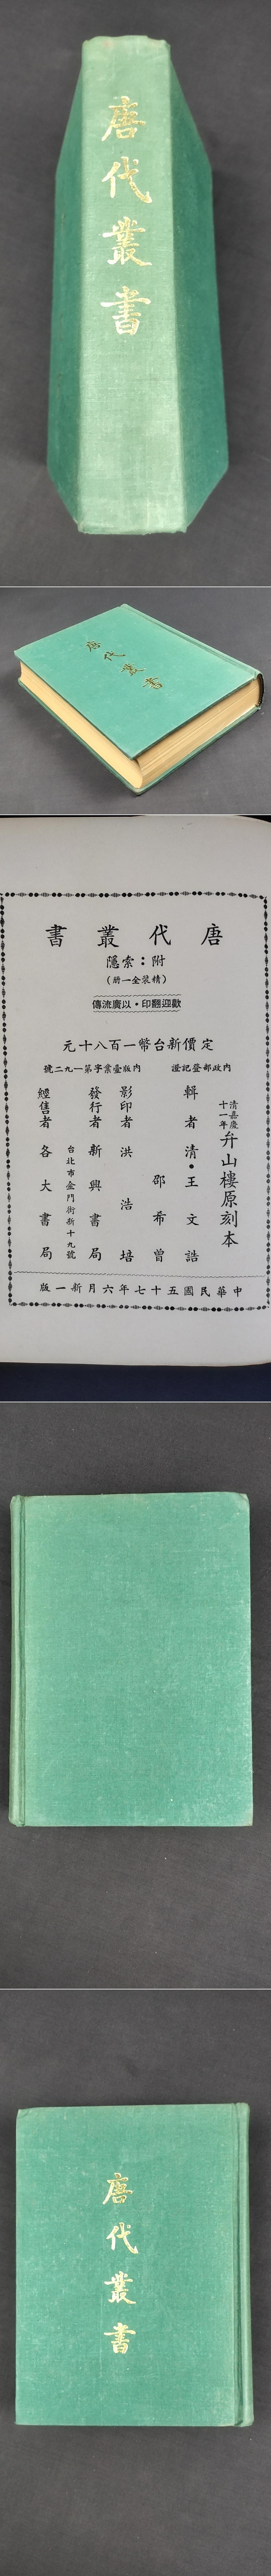 唐代叢書
唐代叢書
唐代叢書
附：索隱
(精裝全一冊)
歡迎翻印•以廣流傳
定價新台幣一百八十元
內政部登記證
內版臺業字第一九二號
清嘉慶十一年弁山樓原刻本
輯者清•王文誥
邵希曾
影印者洪浩培
發行者新興書局
台北市金門街新十九號
經售者各大書局
中華民國五十七年六月新一版
唐代叢書